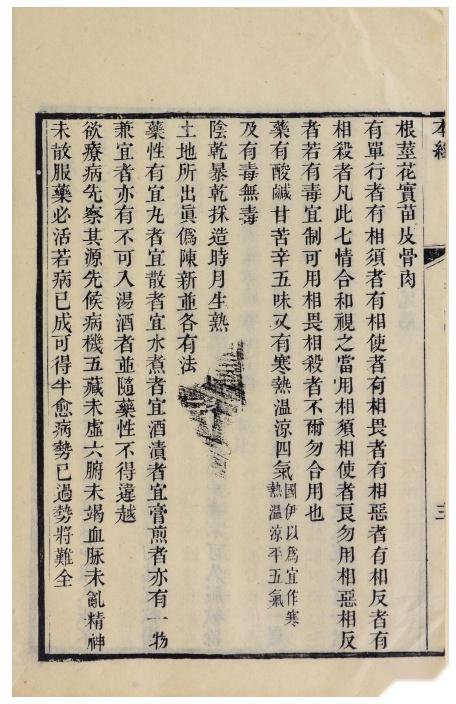 本經
三
根莖花實苗皮骨肉
有單行者有相須者有相使者有相畏者有相惡者有相反者有
相殺者凡此七情合和視之當用相須相使者良勿用相惡相反
者若有毒宜制可用相畏相殺者不爾勿合用也
藥有酸鹹甘苦辛五味又有寒熱溫涼四氣國伊以爲宜作寒熱溫涼平五氣
及有毒無毒
陰乾暴乾採造時月生熟
土地所出眞僞陳新並各有法
藥性有宜丸者宜散者宜水煮者宜酒漬者宜膏煎者亦有一物
兼宜者亦有不可入湯酒者並隨藥性不得違越
欲療病先察其源先候病機五藏未虛六腑未竭血脉未亂精神
未散服藥必活若病已成可得半愈病勢已過勢將難全